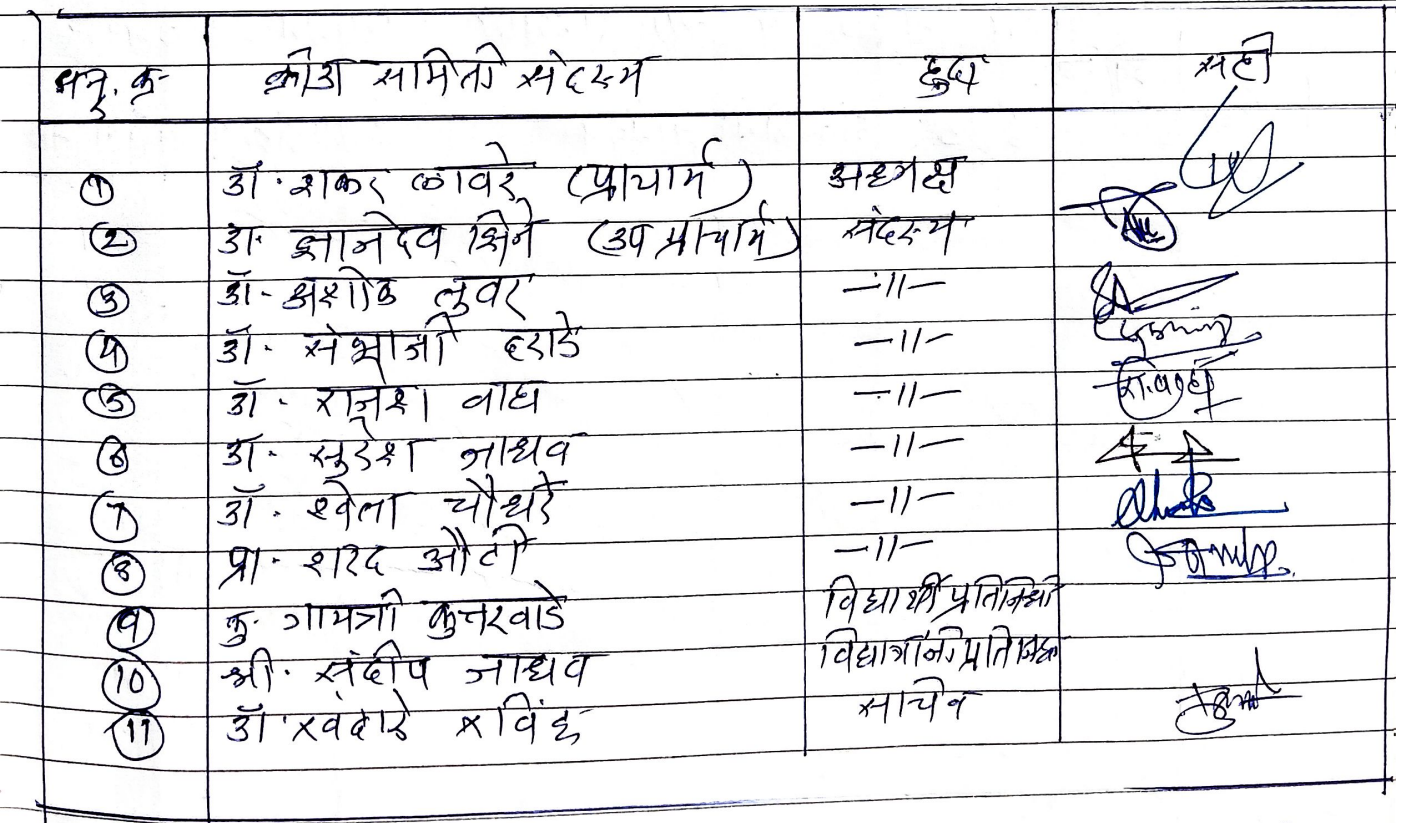 अनू. क्र. क्रीडा समिती सदस्य हुद्दा सही
① डॉ. शंकर लावरे (प्राचार्य) अध्यक्ष
② डॉ. ज्ञानदेव शिने (उप प्राचार्य) सदस्य
③ डॉ. अशोक लुवर -॥-
④ डॉ. संभाजी दराडे -॥-
⑤ डॉ. राजेश वाघ -॥-
⑥ डॉ. सुरेश जाधव -॥-
⑦ डॉ. श्वेता चौधरी -॥-
⑧ प्रा. शरद औटी -॥-
⑨ कु. गायत्री कुत्तरवाडे विद्यार्थी प्रतिनिधी
⑩ श्री. संदीप जाधव
⑪ डॉ. खंदारे रविंद्र सचिव